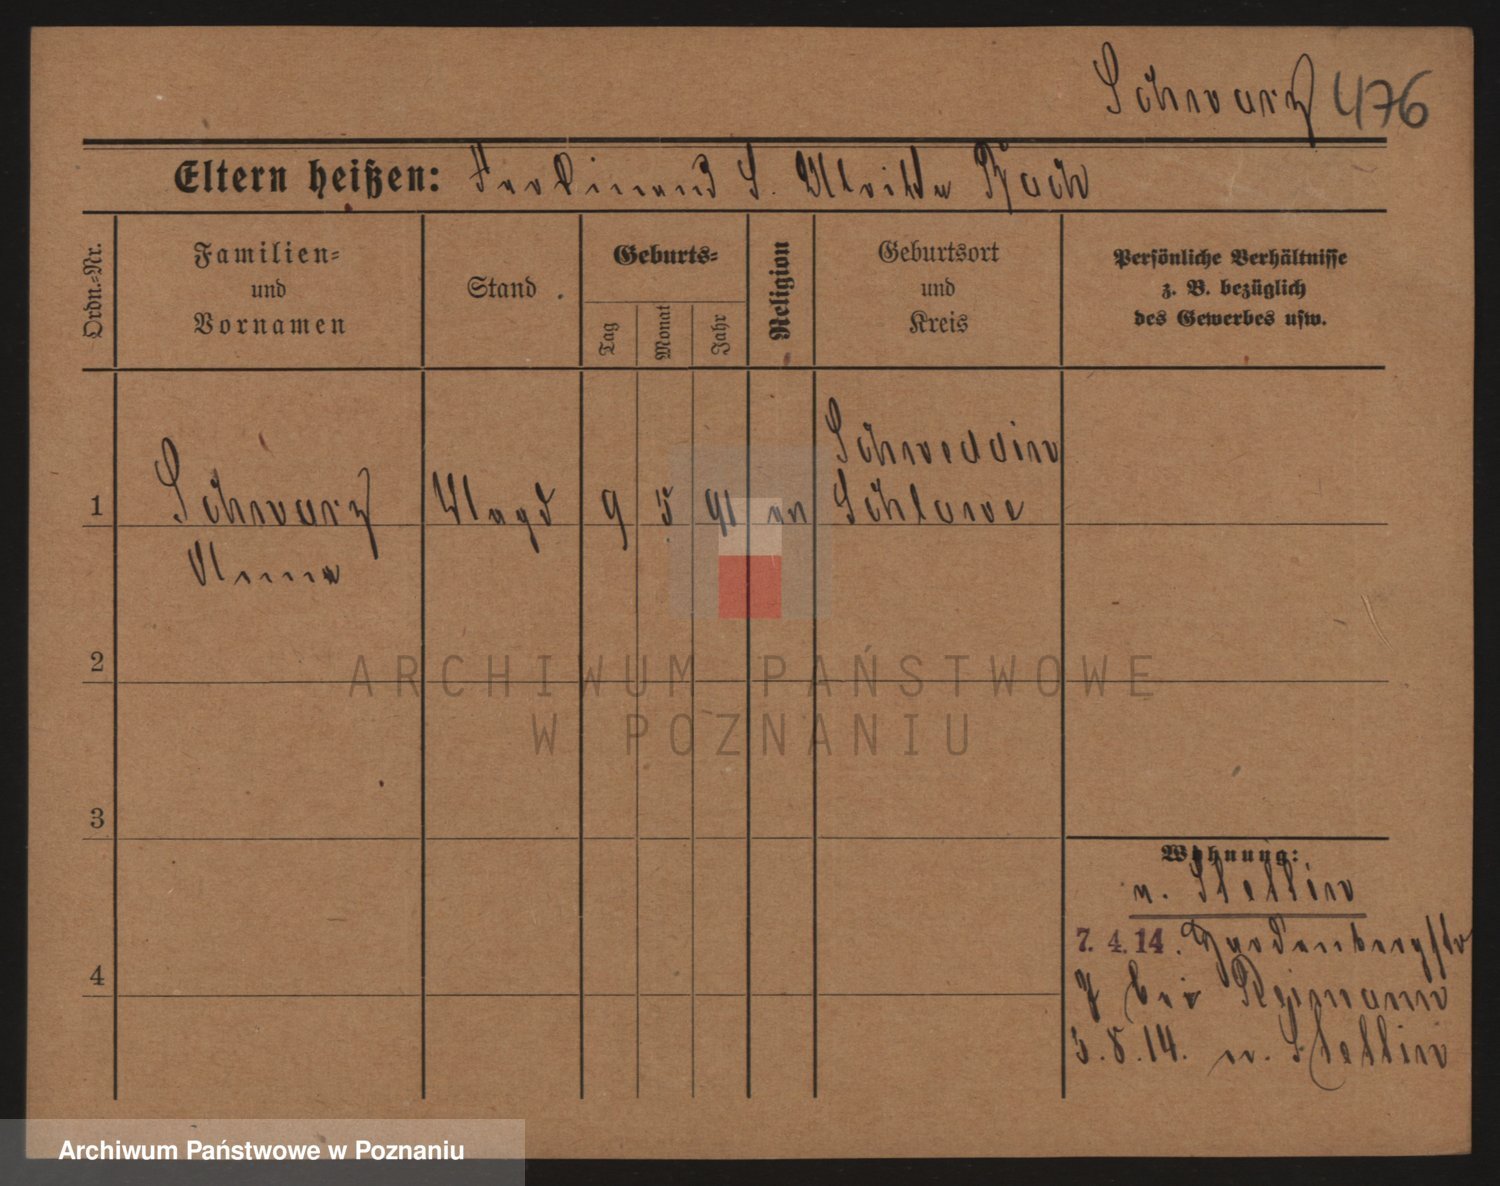 Schwarz 476
Eltern heißen: Ferdinand S. Ulrike Koch
Ordn.-Nr.
Familien-
und
Vornamen
Stand
Geburts-
Tag
Monat
Jahr
Religion
Geburtsort
und
Kreis
Persönliche Verhältnisse
z. B. bezüglich
des Gewerbes usw.
Schwessin
1 Schwarz Magd 9 5 91 ev Schlawe
Anna
2
ARCHIWUM PAŃSTWOWE
W POZNANIU
3
Wohnung:
n. Stettin
7. 4. 14. Hardenbergstr
7 bei
4
5.8.14. n. Stettin
Archiwum Państwowe w Poznaniu